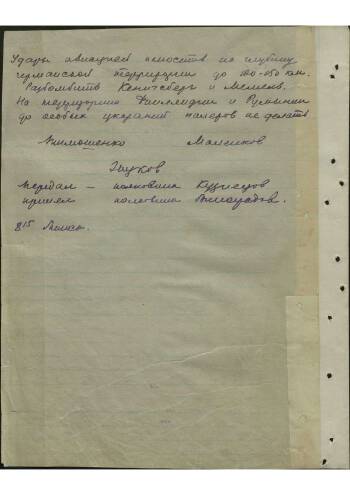 Удары авиацией наносить на глубину
германской территории до 100-150 км.
Разбомбить Кенигсберг и Мемель.
На территорию Финляндии и Румынии
до особых указаний налетов не делать
Тимошенко Маленков
Жуков
Передал – полковник Кузнецов
принял полковник Виноградов.
8 15 Минск.